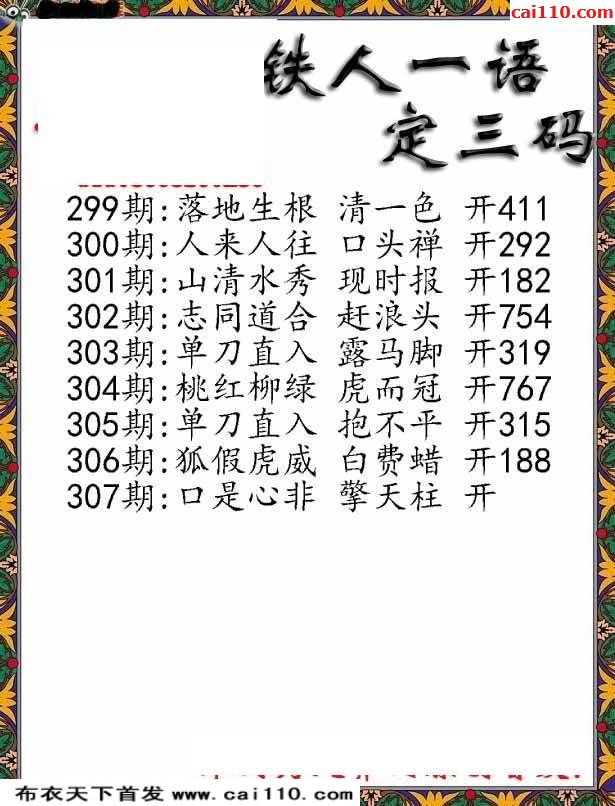 cai110.com
铁人一语
定三码
299期:落地生根 清一色 开411
300期:人来人往 口头禅 开292
301期:山清水秀 现时报 开182
302期:志同道合 赶浪头 开754
303期:单刀直入 露马脚 开319
304期:桃红柳绿 虎而冠 开767
305期:单刀直入 抱不平 开315
306期:狐假虎威 白费蜡 开188
307期:口是心非 擎天柱 开
布衣天下首发 www.cai110.com